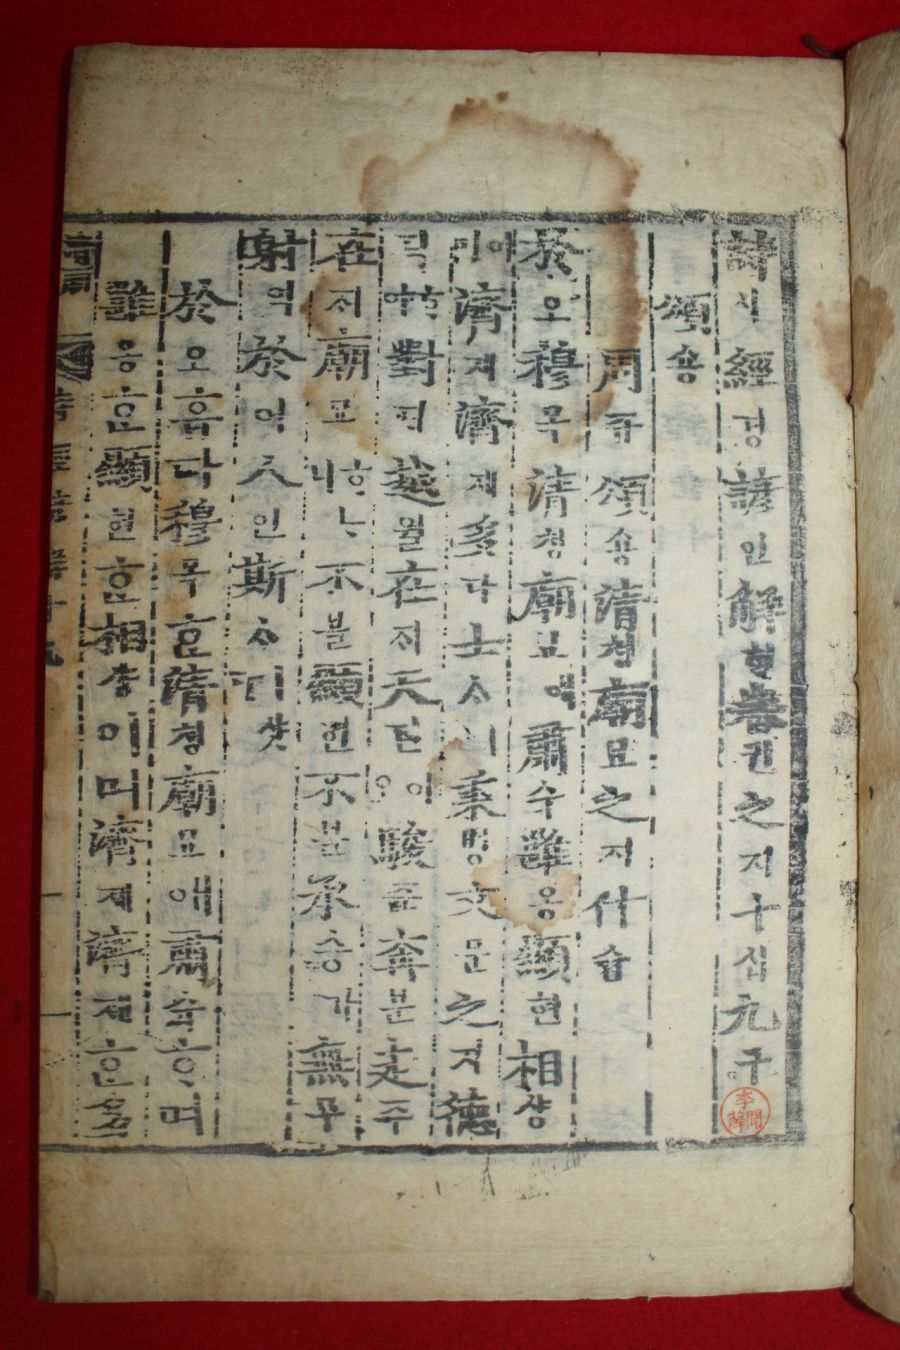 詩시經경諺언解ᄒᆡ卷권之지十십九구
頌숑
周쥬頌숑淸쳥廟묘之지什습
於오穆목淸쳥廟묘애肅슉雝옹顯현相샹
이며濟졔濟졔多다士ᄉᆞ ㅣ秉병文문之지德
덕ᄒᆞ야對ᄃᆡ越월在ᄌᆡ天텬이오駿쥰奔분走주
在ᄌᆡ廟묘ᄒᆞᄂᆞ니不블顯현不블承승가無무
射역於어人인斯ᄉᆞ ㅣ샷다
於오ᄒᆞᆸ다穆목ᄒᆞᆫ淸쳥廟묘애肅슉ᄒᆞ며
雝옹ᄒᆞᆫ顯현ᄒᆞᆫ相샹이며濟졔濟졔ᄒᆞᆫ多
周 詩經諺解十九
李 聞